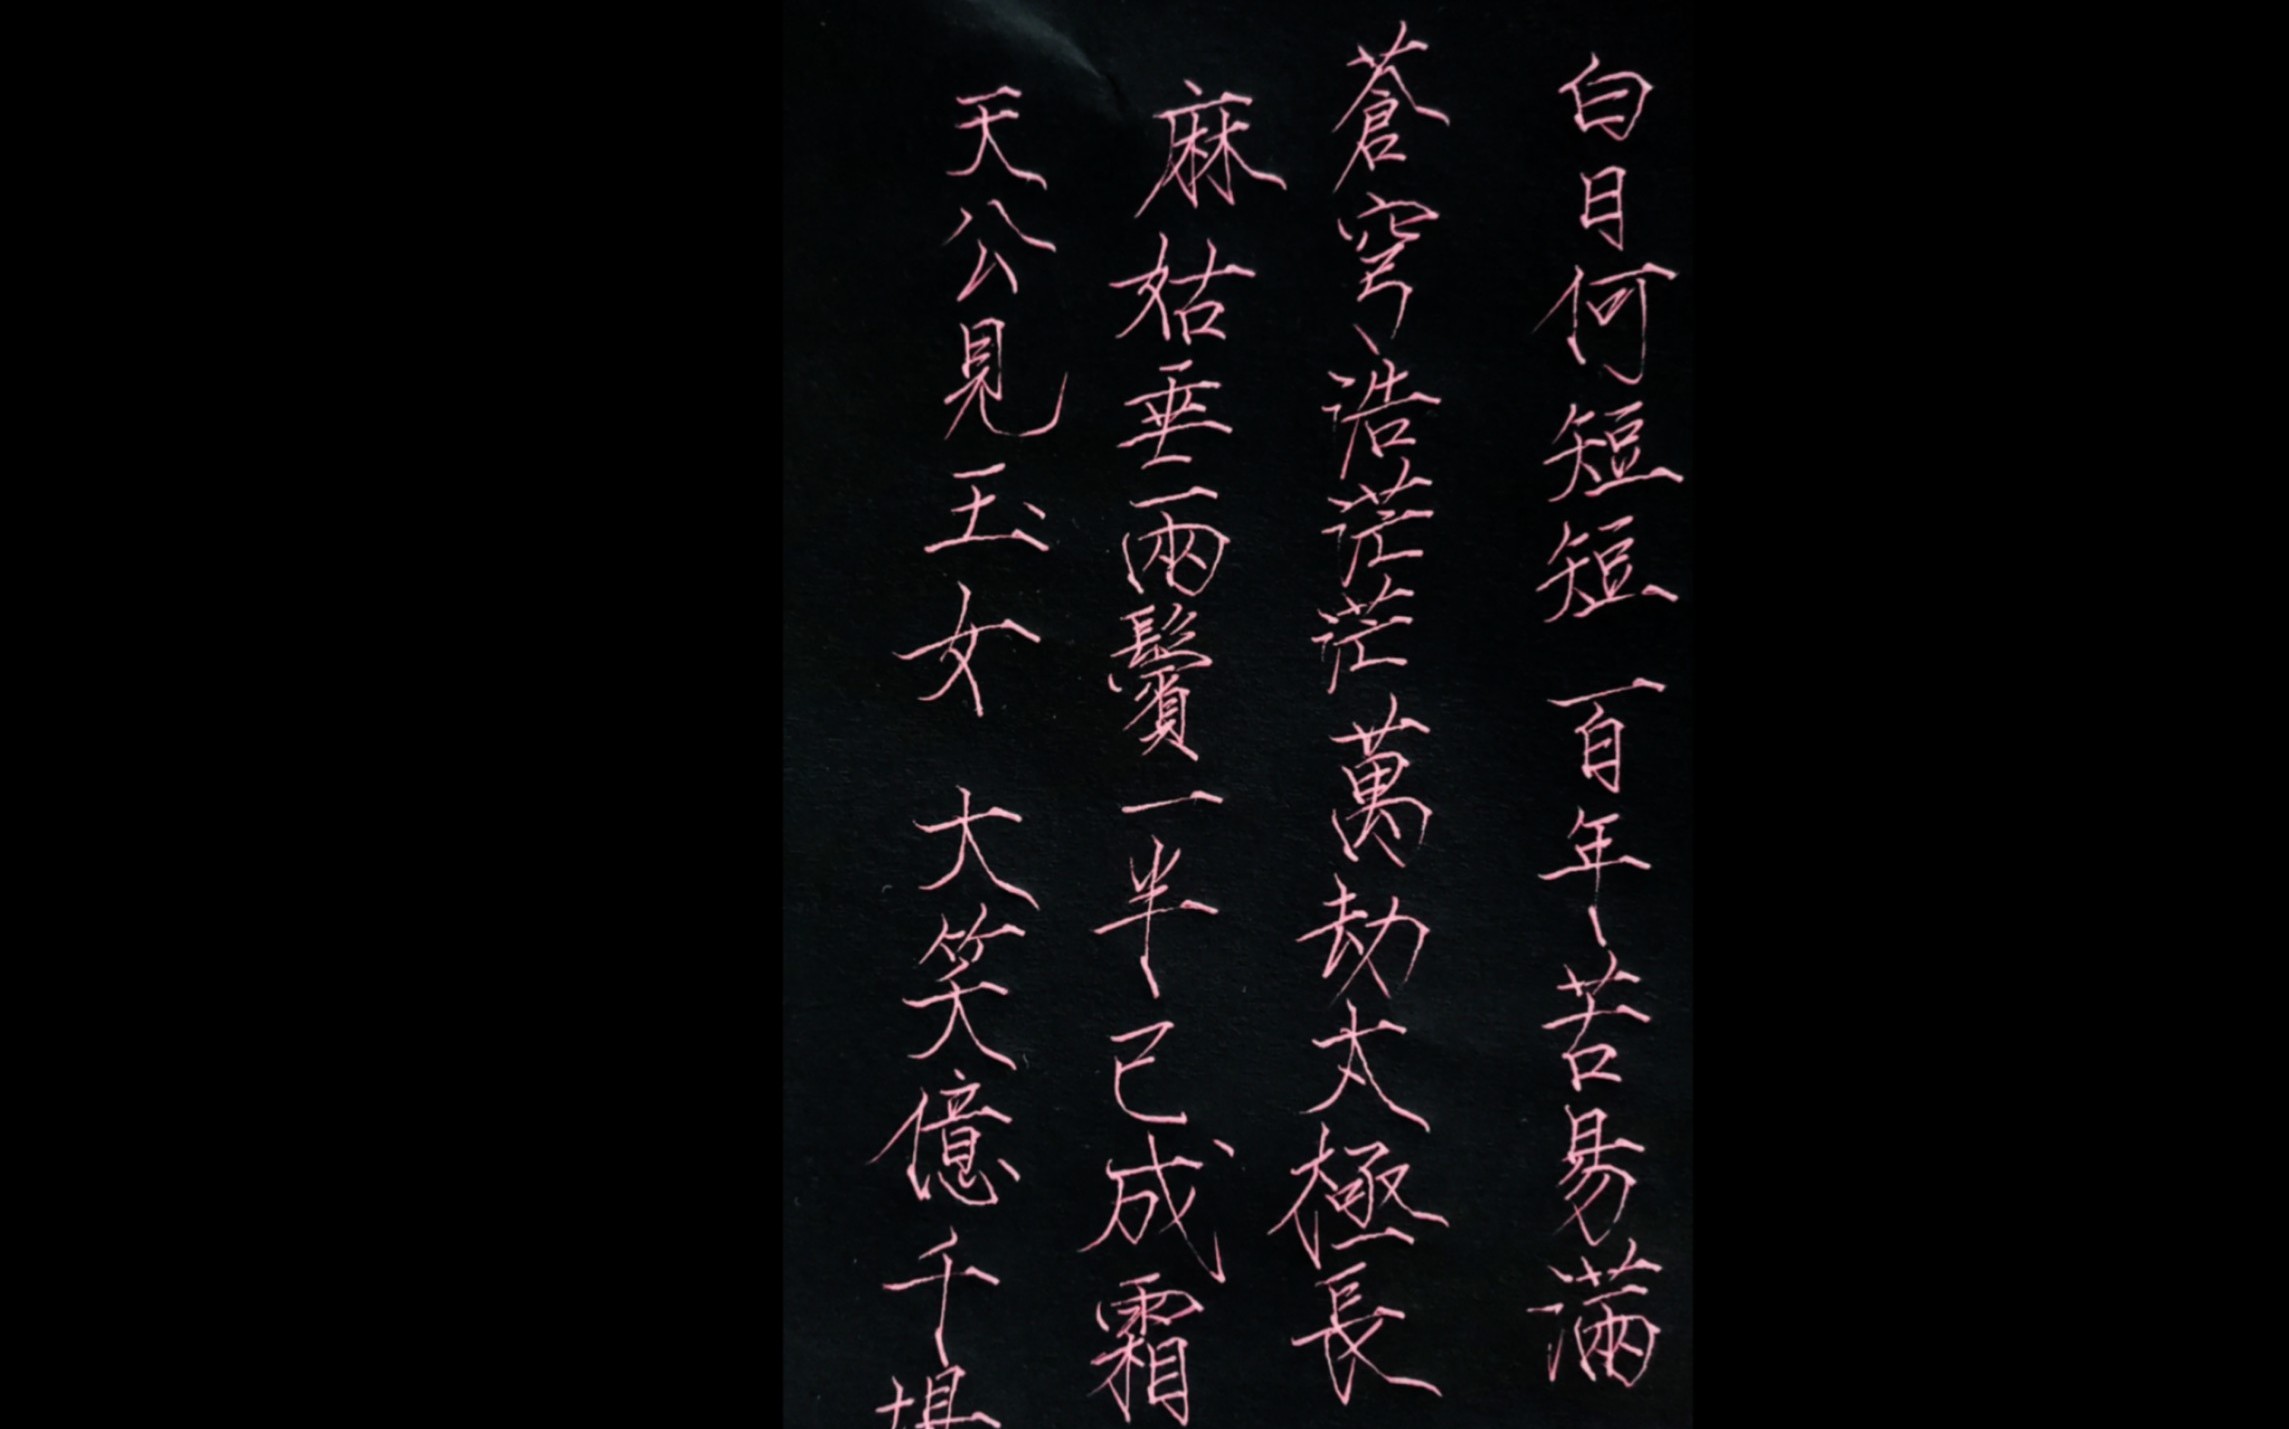 白日何短短百年苦易滿
蒼穹浩茫茫萬劫太極長
麻姑垂兩鬢一半已成霜
天公見玉女大笑億千場